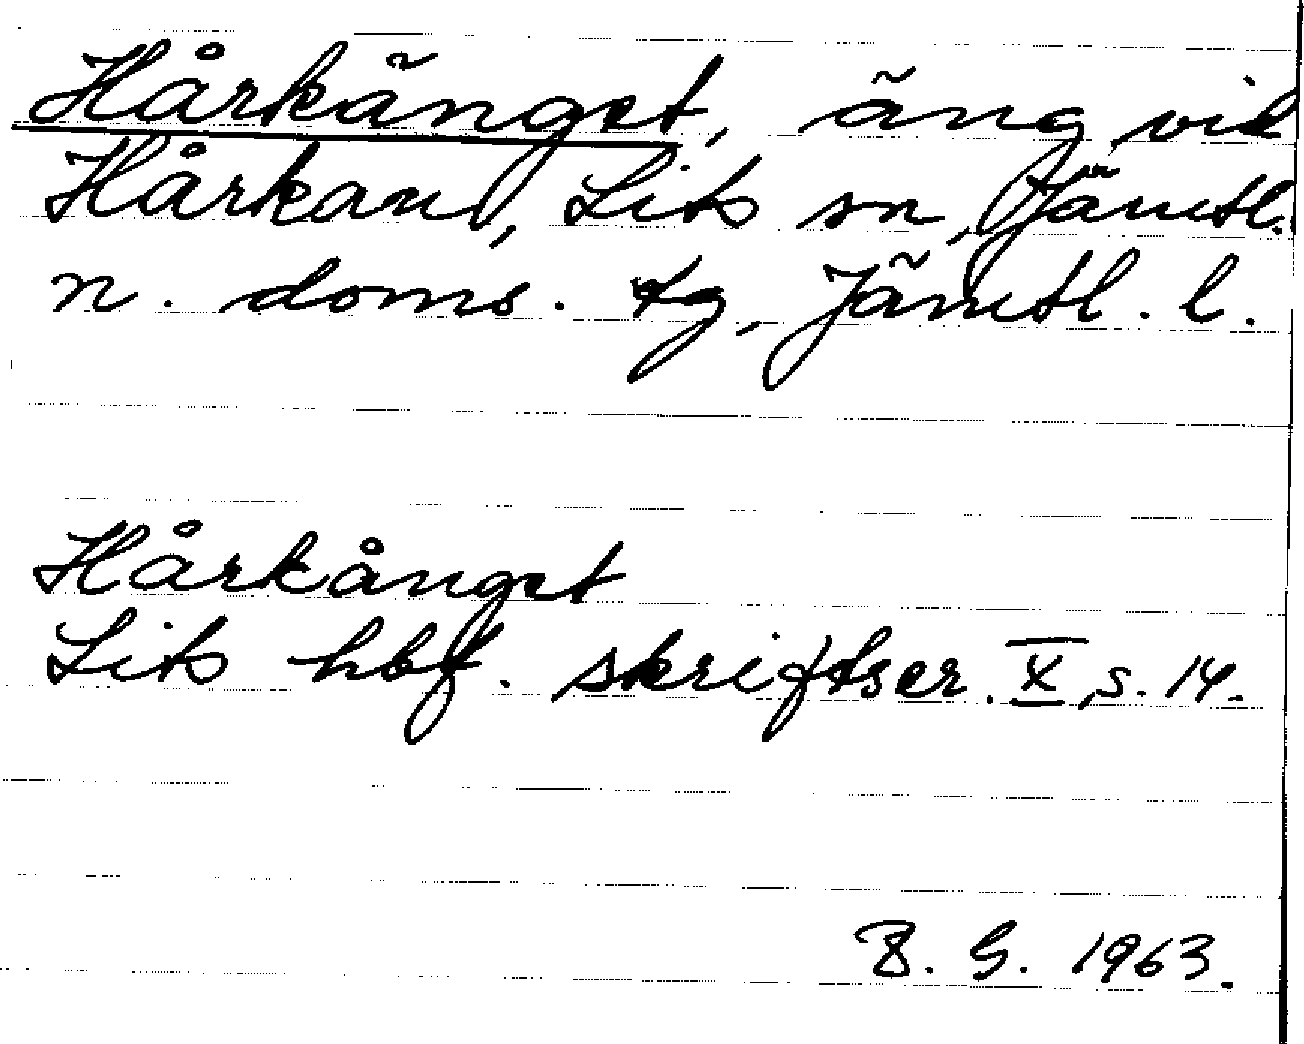 Hårkänget, äng vid
Hårkan, Lits sn, Jämtl.
n. doms. tg, Jämtl. l.
Hårkånget
Lits hbf. skriftser. X, s. 14.
B. G. 1963.